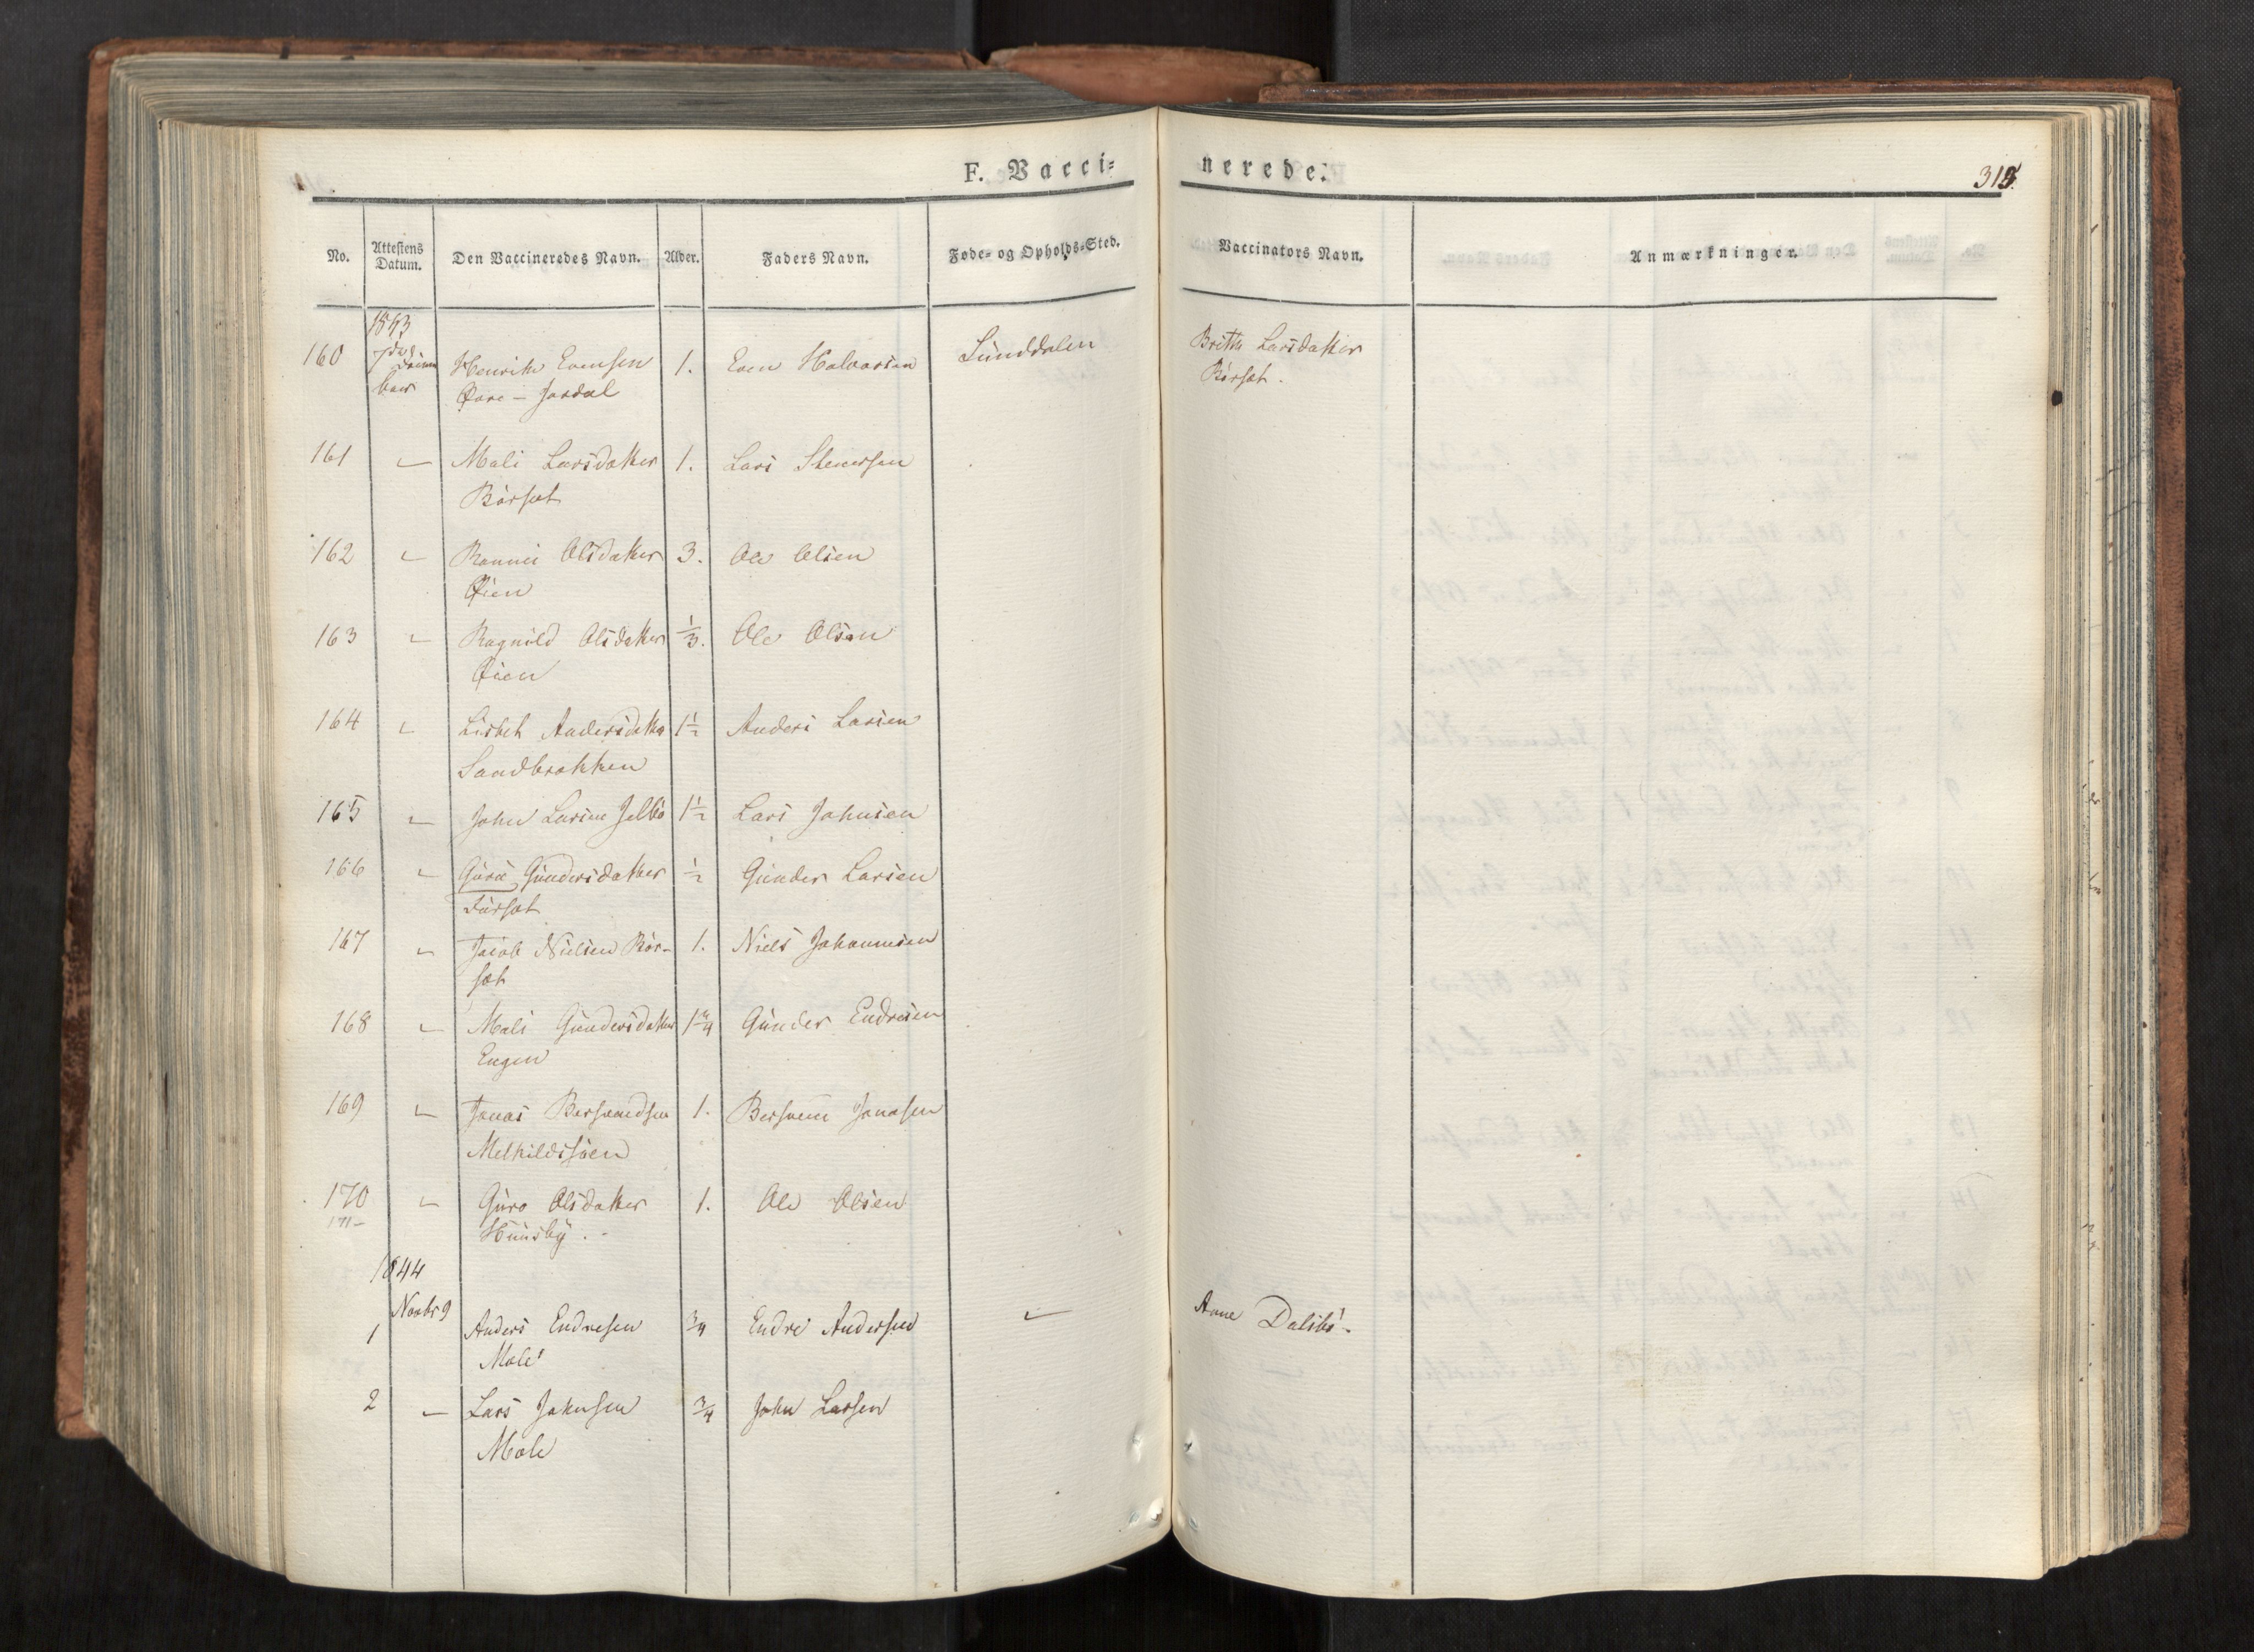 F. Vacci=
nerede.
318.
No. Attestens Datum. Den Vaccineredes Navn. Alder. Faders Navn. Føde- og Opholds-Sted. Vaccinators Navn. Anmærkninger.
1843
160 7de Decem Henrik Evensen 1. Even Halvorsen Sunddalen Britth Larsdatter
ber Øvre - Jordal Børset.
161 " Mali Larsdatter 1. Lars Stenersen
Børset
162 " Rannei Olsdatter 3. Ole Olsen
Øien
163 " Ragnild Olsdatter 1/3. Ole Olsen
Øien
164 " Lisbet Andersdatter 1 1/2 Anders Larsen
Sandbrækken
165 " John Larsen 1 1/2 Lars Johnsen
166 " Guro Gundersdatter 1/2 Gunder Larsen
167 " Jacob Nielsen Bør- 1. Niels Johannesen
set
168 " Mali Gundersdatter 1 3/4 Gunder Endresen
Engen
169 " Jonas Bersvendsen 1. Bersvein Jonasen
170 " Guro Olsdatter 1. Ole Olsen
171 - Huusby. -
1844
Novbr 9
1 Anders Endresen 3/4 Endre Andersen " Anne Dalsbø.
Mæle
2 " Lars Johnsen 3/4 John Larsen
Mæle